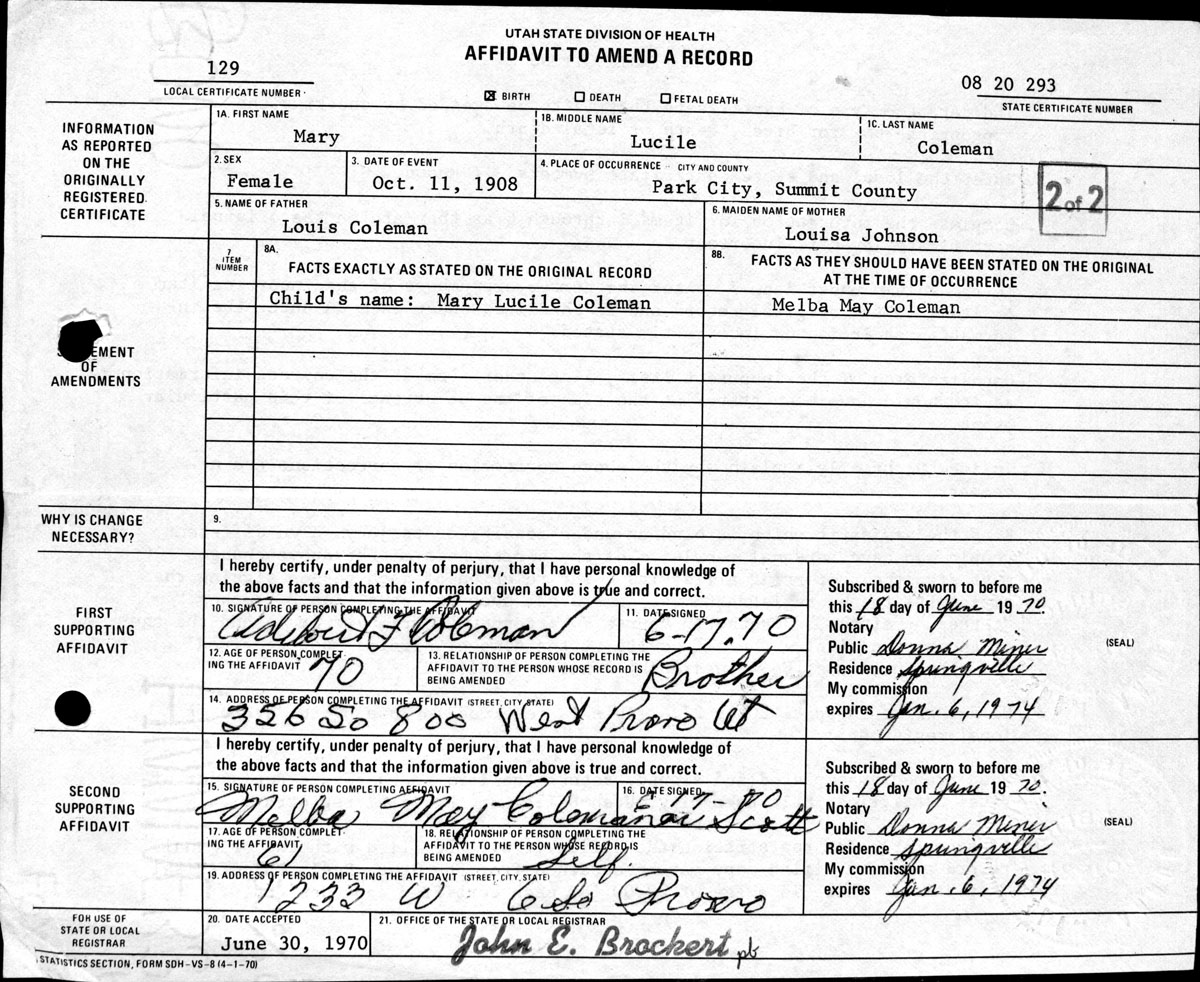 UTAH STATE DIVISION OF HEALTH
AFFIDAVIT TO AMEND A RECORD
129
LOCAL CERTIFICATE NUMBER
☒ BIRTH ☐ DEATH ☐ FETAL DEATH
08 20 293
STATE CERTIFICATE NUMBER
INFORMATION
AS REPORTED
ON THE
ORIGINALLY
REGISTERED
CERTIFICATE
1A. FIRST NAME
Mary
1B. MIDDLE NAME
Lucile
1C. LAST NAME
Coleman
2. SEX
Female
3. DATE OF EVENT
Oct. 11, 1908
4. PLACE OF OCCURRENCE - CITY AND COUNTY
Park City, Summit County
2 of 2
5. NAME OF FATHER
Louis Coleman
6. MAIDEN NAME OF MOTHER
Louisa Johnson
7
ITEM
NUMBER
8A.
FACTS EXACTLY AS STATED ON THE ORIGINAL RECORD
8B.
FACTS AS THEY SHOULD HAVE BEEN STATED ON THE ORIGINAL
AT THE TIME OF OCCURRENCE
Child's name: Mary Lucile Coleman
Melba May Coleman
EMENT
OF
AMENDMENTS
WHY IS CHANGE
NECESSARY?
9.
FIRST
SUPPORTING
AFFIDAVIT
I hereby certify, under penalty of perjury, that I have personal knowledge of
the above facts and that the information given above is true and correct.
10. SIGNATURE OF PERSON COMPLETING THE AFFIDAVIT
F Coleman
11. DATE SIGNED
6-17-70
12. AGE OF PERSON COMPLET-
ING THE AFFIDAVIT
70
13. RELATIONSHIP OF PERSON COMPLETING THE
AFFIDAVIT TO THE PERSON WHOSE RECORD IS
BEING AMENDED
Brother
14. ADDRESS OF PERSON COMPLETING THE AFFIDAVIT (STREET, CITY, STATE)
356 So 800 West Provo Ut
Subscribed & sworn to before me
this 18 day of June 1970.
Notary
Public Donna Miner
Residence Springville
My commission
expires Jan. 6, 1974
(SEAL)
SECOND
SUPPORTING
AFFIDAVIT
I hereby certify, under penalty of perjury, that I have personal knowledge of
the above facts and that the information given above is true and correct.
15. SIGNATURE OF PERSON COMPLETING AFFIDAVIT
Melba May Coleman Scott
16. DATE SIGNED
6-17-70
17. AGE OF PERSON COMPLET-
ING THE AFFIDAVIT
61
18. RELATIONSHIP OF PERSON COMPLETING THE
AFFIDAVIT TO THE PERSON WHOSE RECORD IS
BEING AMENDED
Self.
19. ADDRESS OF PERSON COMPLETING THE AFFIDAVIT (STREET, CITY, STATE)
1233 W 6 So Provo
Subscribed & sworn to before me
this 18 day of June 1970.
Notary
Public Donna Miner
Residence Springville
My commission
expires Jan. 6, 1974
(SEAL)
FOR USE OF
STATE OR LOCAL
REGISTRAR
20. DATE ACCEPTED
June 30, 1970
21. OFFICE OF THE STATE OR LOCAL REGISTRAR
John E. Brockert pb
STATISTICS SECTION, FORM SDH-VS-8 (4-1-70)